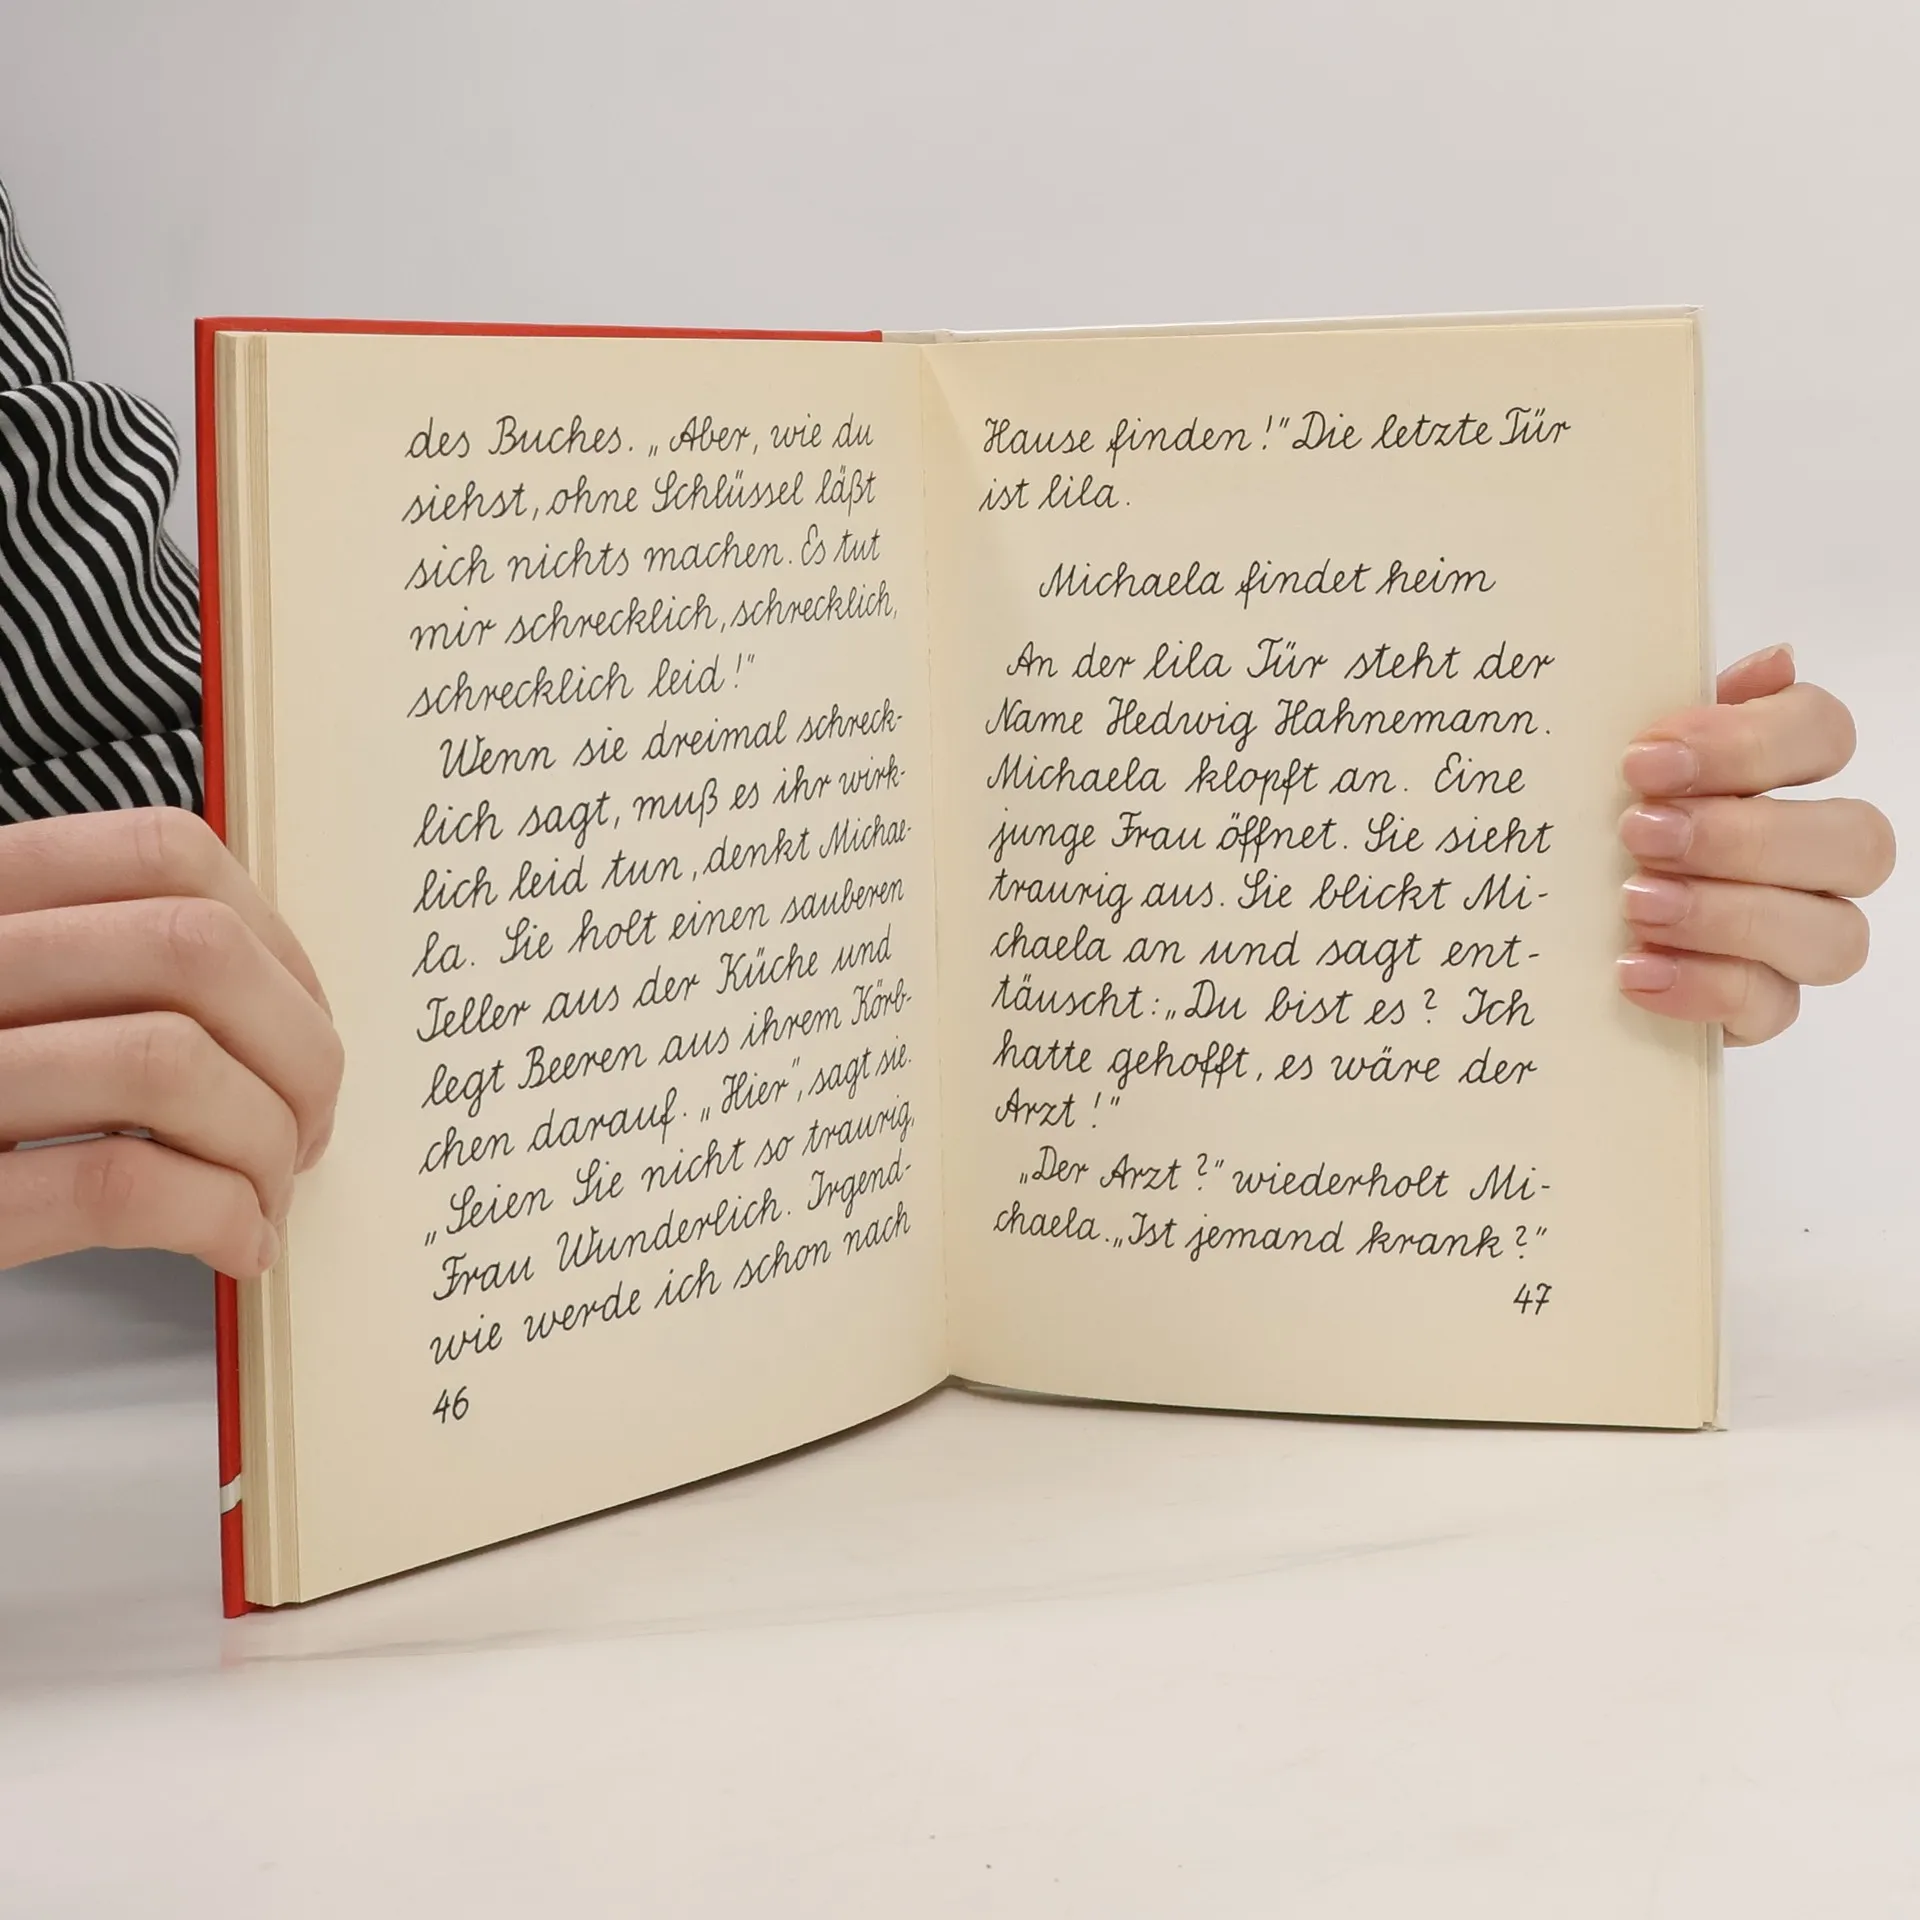 des Buches. „Aber, wie du
siehst, ohne Schlüssel läßt
sich nichts machen. Es tut
mir schrecklich, schrecklich,
schrecklich leid!"
Wenn sie dreimal schreck-
lich sagt, muß es ihr wirk-
lich leid tun, denkt Michae-
la. Sie holt einen sauberen
Teller aus der Küche und
legt Beeren aus ihrem Körb-
chen darauf. „Hier", sagt sie.
„Seien Sie nicht so traurig,
Frau Wunderlich. Irgend-
wie werde ich schon nach
46
Hause finden!" Die letzte Tür
ist lila.
Michaela findet heim
An der lila Tür steht der
Name Hedwig Hahnemann.
Michaela klopft an. Eine
junge Frau öffnet. Sie sieht
traurig aus. Sie blickt Mi-
chaela an und sagt ent-
täuscht: „Du bist es? Ich
hatte gehofft, es wäre der
Arzt!"
„Der Arzt?" wiederholt Mi-
chaela. „Ist jemand krank?"
47